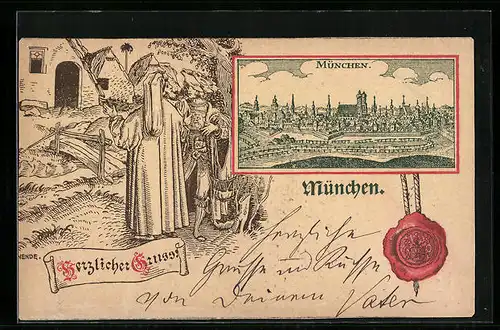 MÜNCHEN.
München.
Herzlicher Gruss!
Herzliche
Grüsse und Küsse
von Deinem Vater